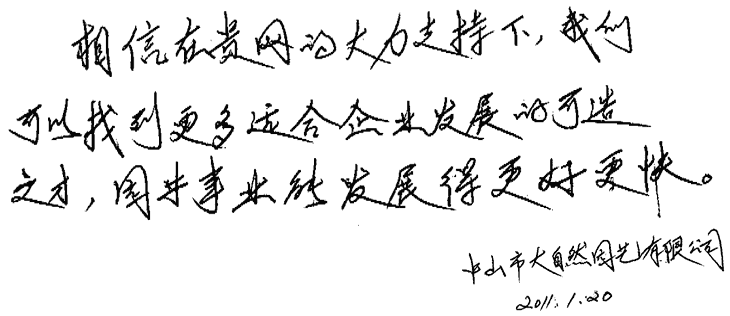 相信在贵网的大力支持下,我们
可以找到更多适合企业发展的可造
之才,园艺事业能发展得更好更快。
中山市大自然园艺有限公司
2011.1.20